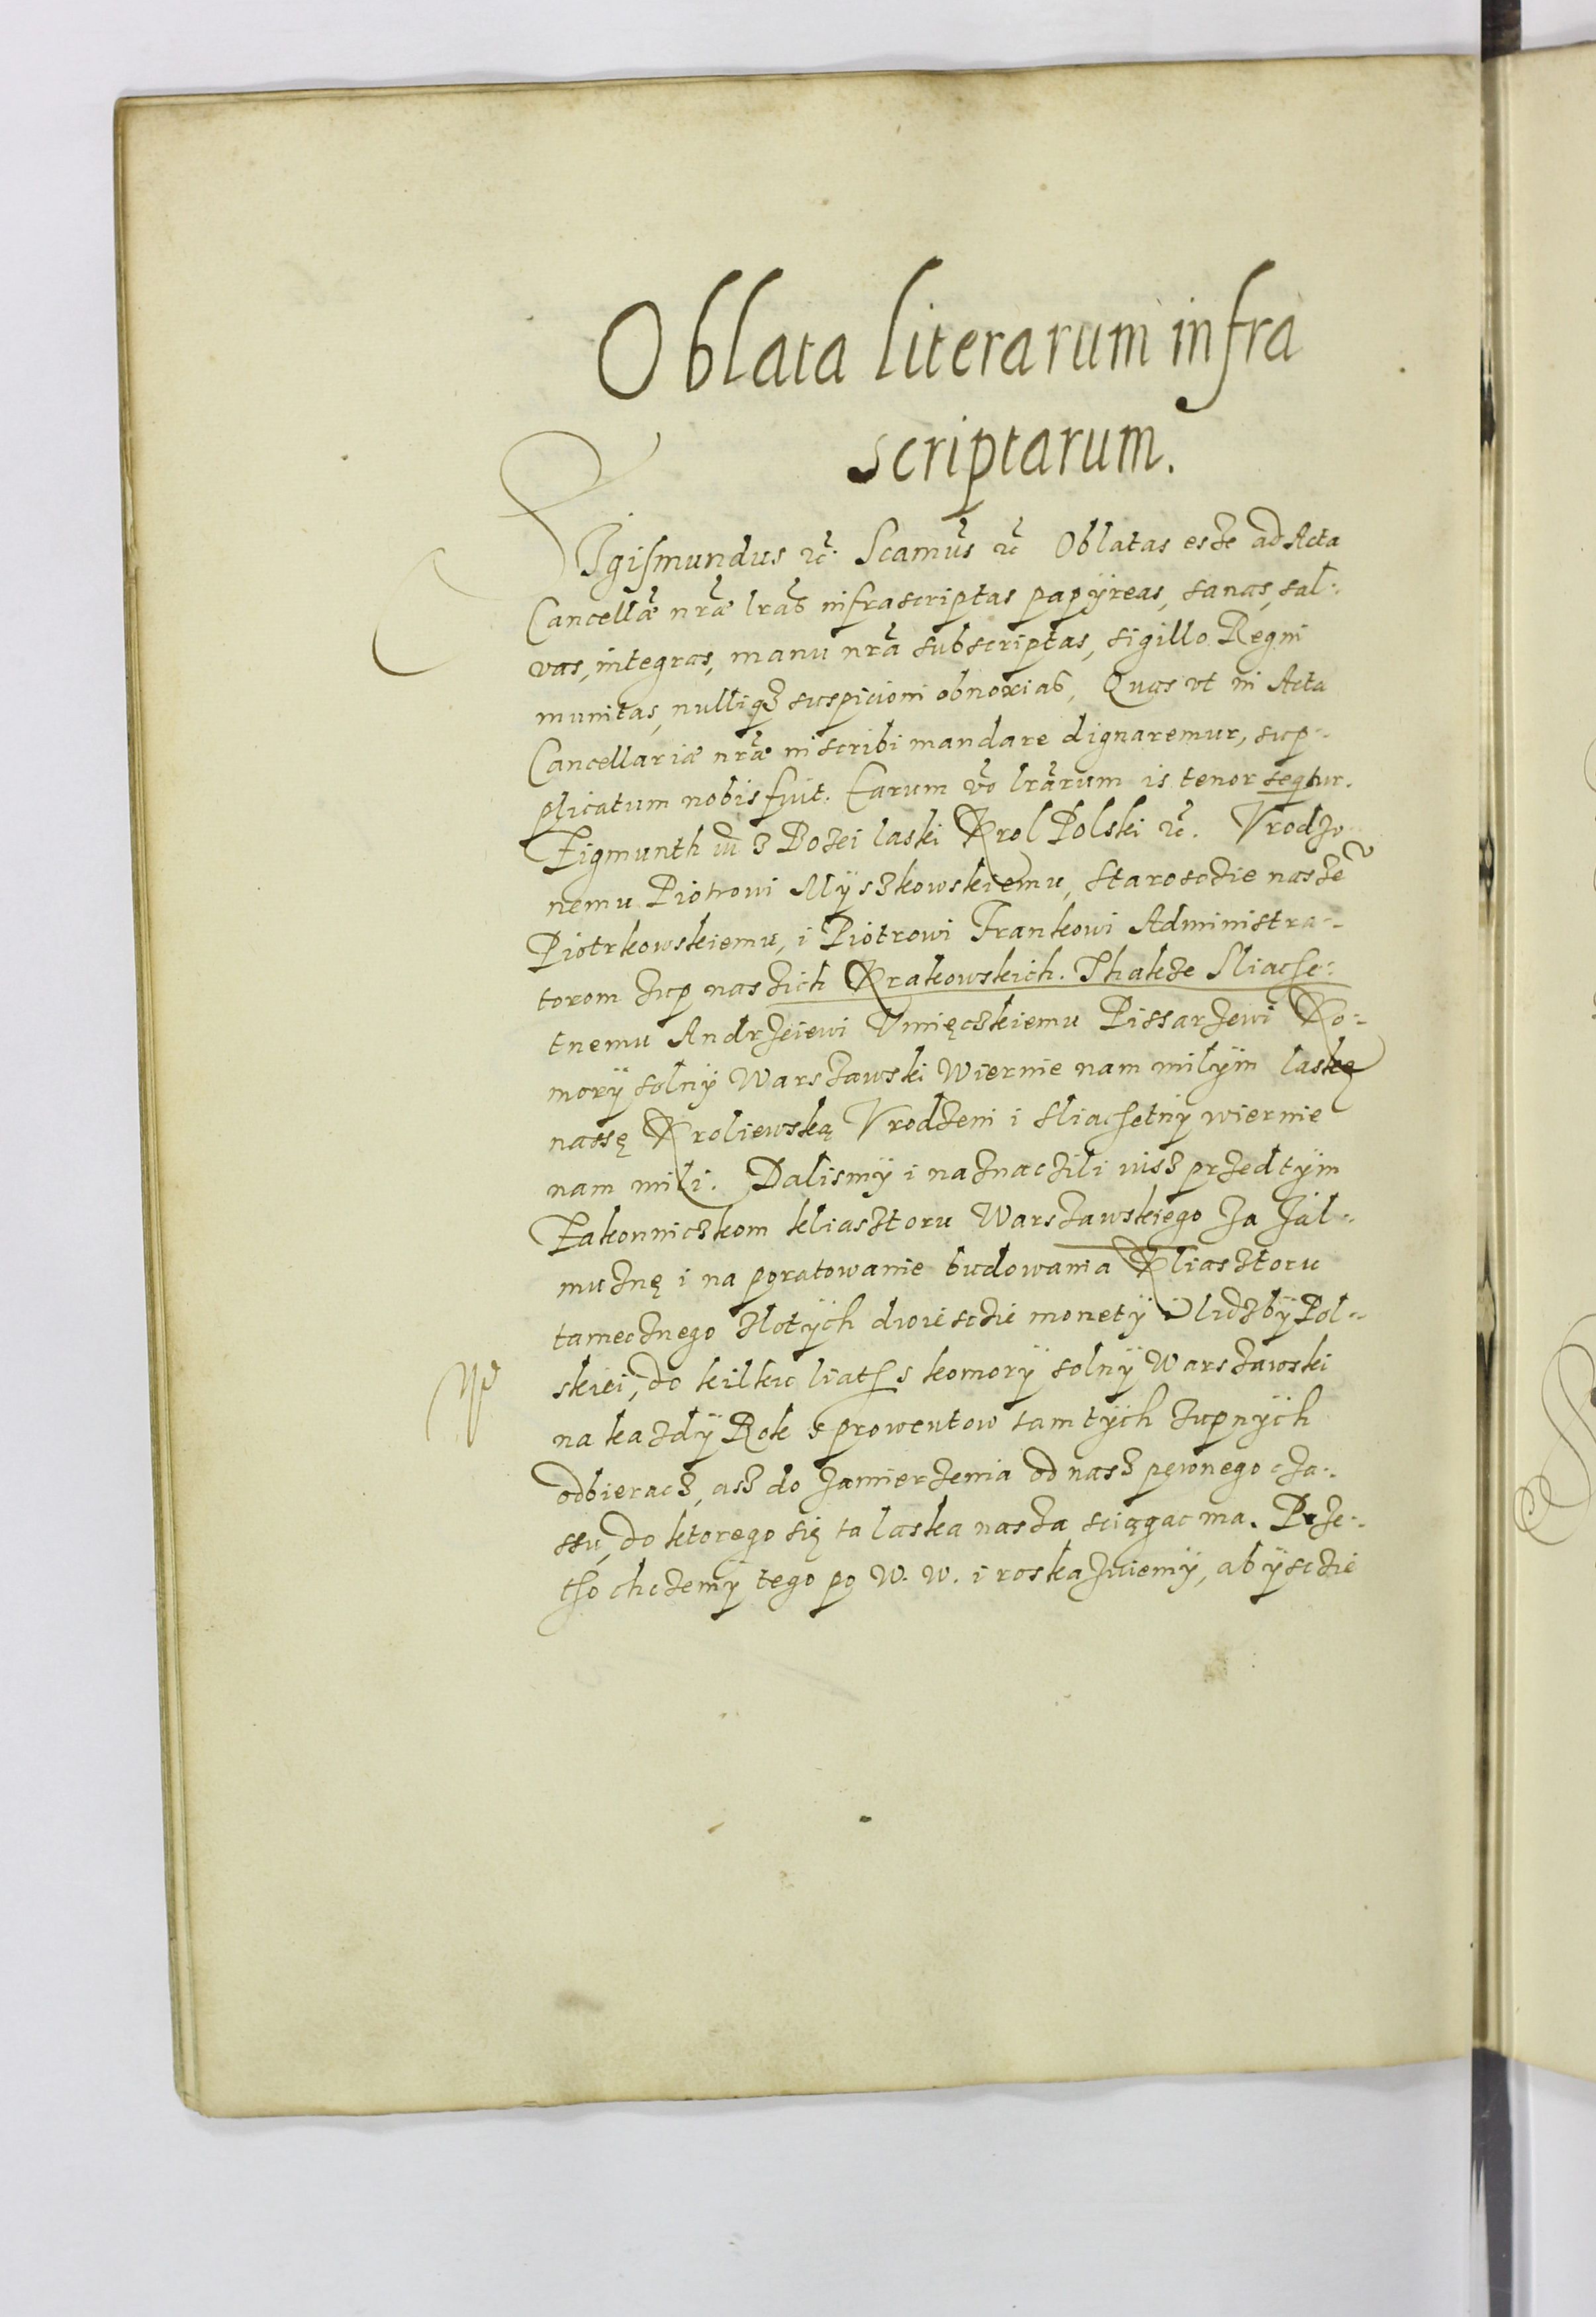 Oblata literarum infra
scriptarum.
SIgismundus ꝛc̃. Scamus̃ ꝛc̃ Oblatas esze ad Acta
Cancellæ̃ nræ̃ lrãs infrascriptas papÿreas, sanas, sal⸗
vas, integras, manu nrã subscriptas, sigillo Regni
munitas, nulliq3 suspicioni obnoxias, Quas vt in Acta
Cancellariæ nræ̃ inscribi mandare dignaremur, sup⸗
plicatum nobis fuit. Earum vẽo lrãrum is tenor seqtur.
Zigmunth III z Bozei laski Krol Polski ꝛc̃. Vrodzo
nemu Piotrowi Mÿszkowskiemu, starosczie nasze͠
Piotrkowskiemu, i Piotrowi Frankowi Administra⸗
torom zup naszich Krakowskich. Thakze Sliache⸗
tnemu Andrzeiewi Vmięczkiemu Pissarzewi Ko⸗
morÿ solnÿ Warszawski Wiernie nam milÿm laskę
nassę Kroliewską Vrodzeni i sliachetnÿ wiernie
nam mili. Dalismÿ i naznaczili uisz przedtÿm
Zakonniczkom kliasztoru Warszawskiego za Jal⸗
muznę i na poratowanie budowania Kliasztoru
tamecznego zlotÿch dwiesczie monetÿ i lidzbÿ Pol⸗
skiei, do kilku liath s komorÿ solnÿ Warszawski
na kazdÿ Rok s prowentow tamtÿch zupnÿch
odbieracz, asz do zamierzenia od nasz pewnego cza⸗
ssu, do ktorego się ta laska nasza sciągac ma. Prze⸗
tho chczemÿ tego po W. W. i roskazuiemÿ, abÿsczie